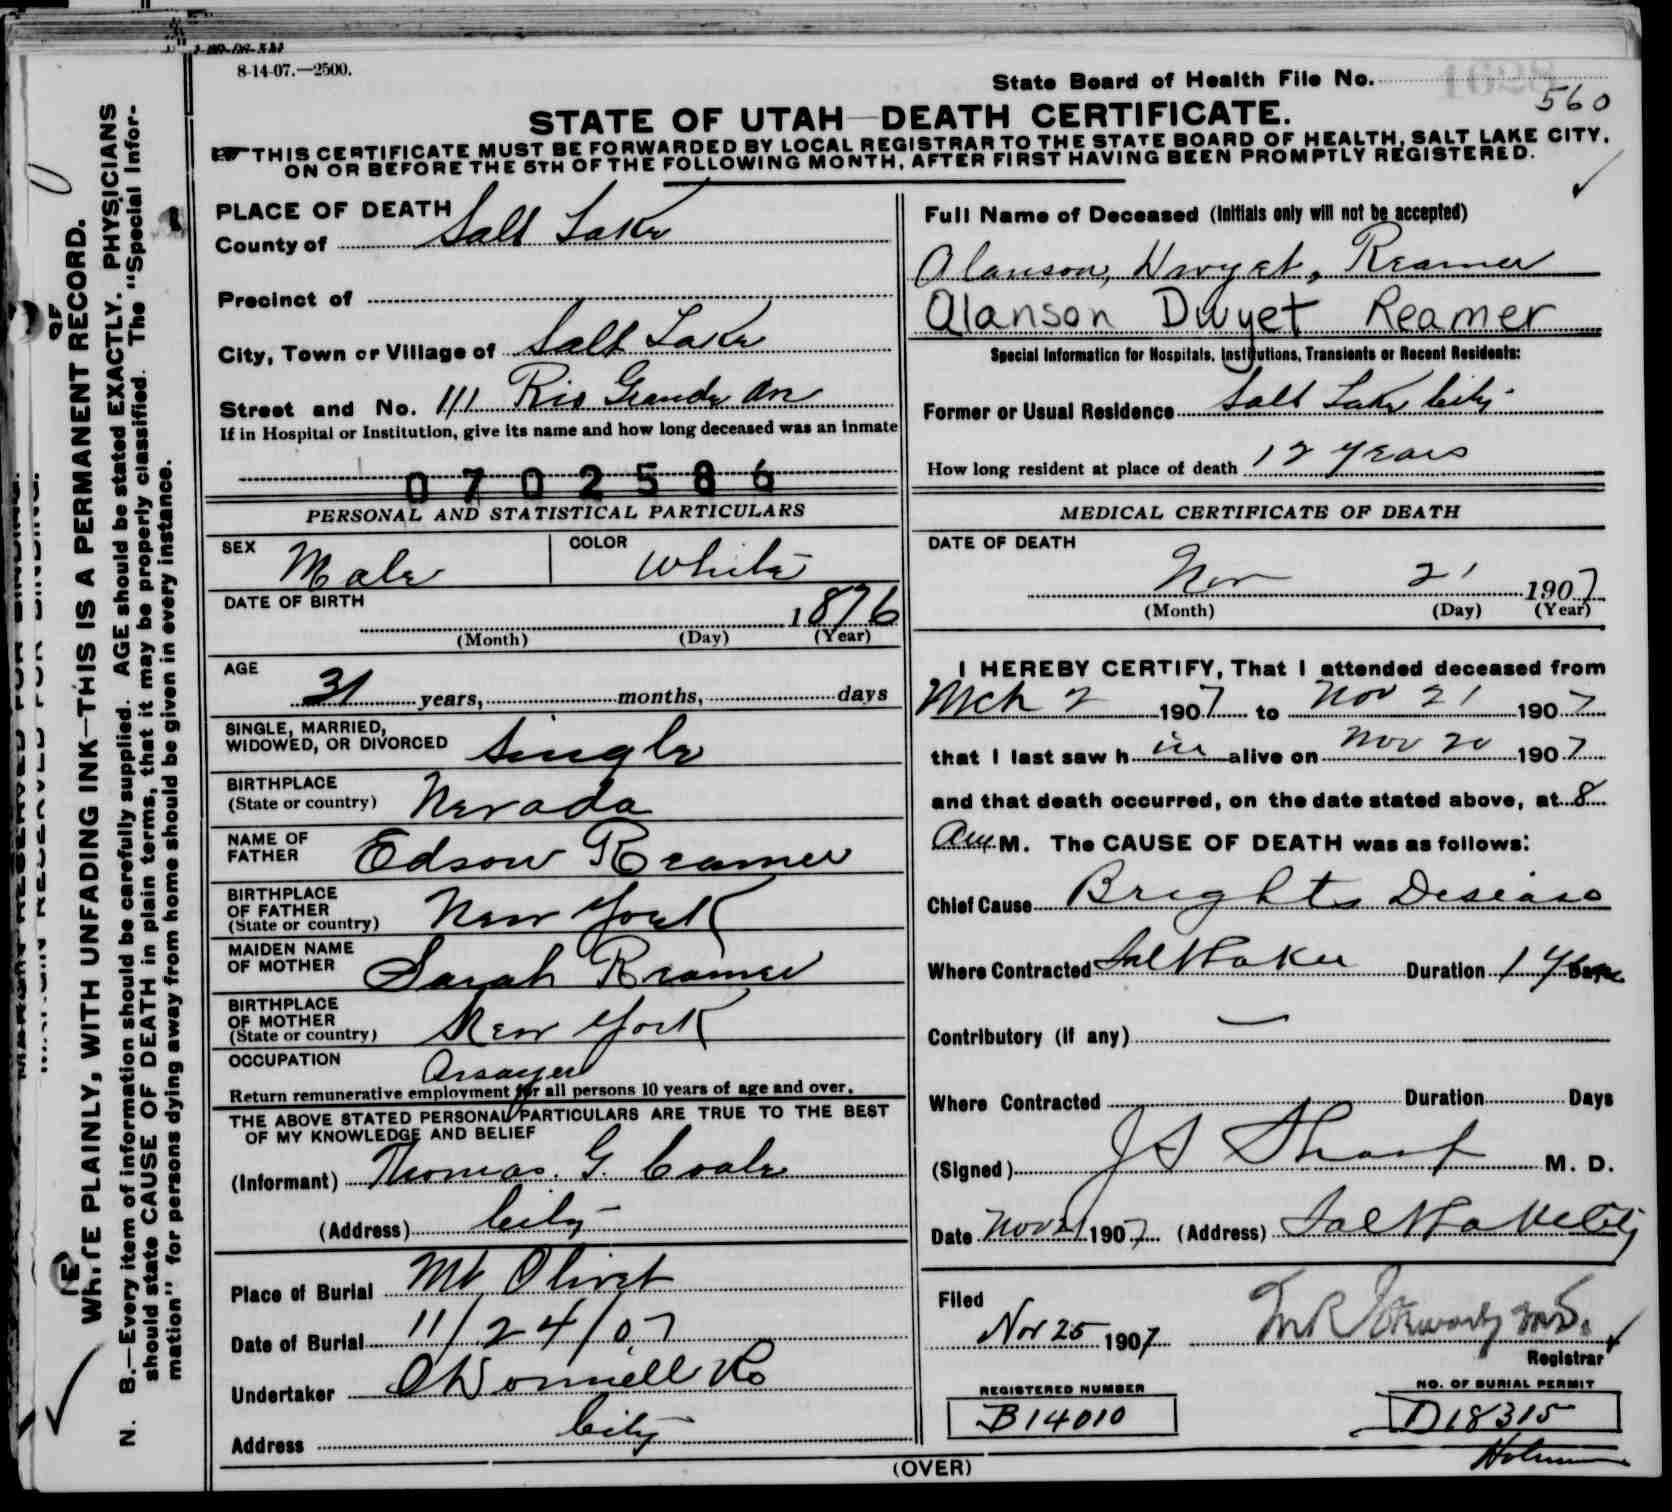 8-14-07.—2500.
State Board of Health File No.
560
STATE OF UTAH—DEATH CERTIFICATE.
THIS CERTIFICATE MUST BE FORWARDED BY LOCAL REGISTRAR TO THE STATE BOARD OF HEALTH, SALT LAKE CITY,
ON OR BEFORE THE 5TH OF THE FOLLOWING MONTH, AFTER FIRST HAVING BEEN PROMPTLY REGISTERED.
WRITE PLAINLY, WITH UNFADING INK—THIS IS A PERMANENT RECORD.
N. B.—Every item of information should be carefully supplied. AGE should be stated EXACTLY. PHYSICIANS
should state CAUSE OF DEATH in plain terms, that it may be properly classified. The "Special Infor-
mation" for persons dying away from home should be given in every instance.
PLACE OF DEATH
County of Salt Lake
Precinct of
City, Town or Village of Salt Lake
Street and No. 111 Rio Grande Ave
If in Hospital or Institution, give its name and how long deceased was an inmate
0702586
PERSONAL AND STATISTICAL PARTICULARS
SEX Male COLOR White
DATE OF BIRTH 1876
(Month) (Day) (Year)
AGE
31 years, months, days
SINGLE, MARRIED,
WIDOWED, OR DIVORCED Single
BIRTHPLACE
(State or country) Nevada
NAME OF
FATHER Edson Reamer
BIRTHPLACE
OF FATHER
(State or country) New York
MAIDEN NAME
OF MOTHER Sarah Reamer
BIRTHPLACE
OF MOTHER
(State or country) New York
OCCUPATION Assayer
Return remunerative employment for all persons 10 years of age and over.
THE ABOVE STATED PERSONAL PARTICULARS ARE TRUE TO THE BEST
OF MY KNOWLEDGE AND BELIEF
(Informant) Thomas G.
(Address) City
Place of Burial Mt Olivet
Date of Burial 11/24/07
Undertaker O'Donnell & Co
Address City
Full Name of Deceased (Initials only will not be accepted)
Alanson, Dwyet, Reamer
Alanson Dwyet Reamer
Special Information for Hospitals, Institutions, Transients or Recent Residents:
Former or Usual Residence Salt Lake City
How long resident at place of death 12 years
MEDICAL CERTIFICATE OF DEATH
DATE OF DEATH
Nov 21 1907
(Month) (Day) (Year)
I HEREBY CERTIFY, That I attended deceased from
Mch 2 1907 to Nov 21 1907
that I last saw him alive on Nov 20 1907
and that death occurred, on the date stated above, at 8
am M. The CAUSE OF DEATH was as follows:
Chief Cause Brights Disease
Where Contracted Salt Lake Duration 1 Year
Contributory (if any) —
Where Contracted Duration Days
(Signed) J S Sharp M. D.
Date Nov 21 1907 (Address) Salt Lake City
Filed
Nov 25 1907
Registrar
REGISTERED NUMBER
B14010
NO. OF BURIAL PERMIT
D18315
(OVER)